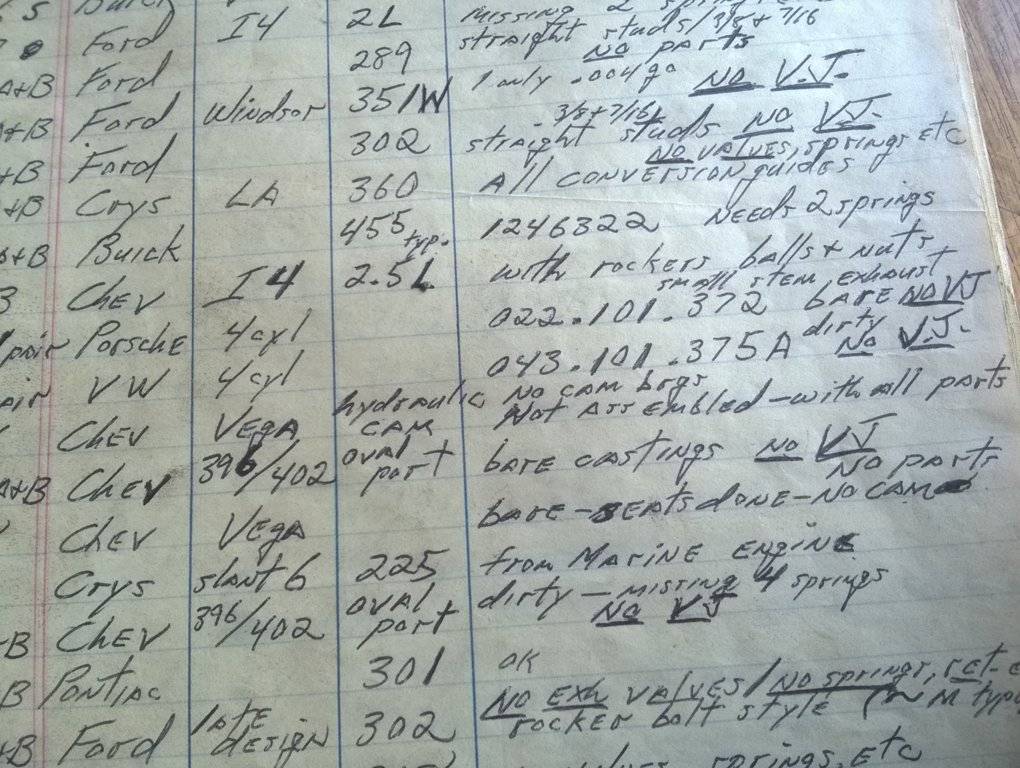 Ford I4 2L missing 2
straight studs/3/8 + 7/16
A+B Ford 289 NO parts
1 only .004 go NO V.J.
A+B Ford Windsor 351W - 3/8 + 7/16
straight studs NO VJ.
+B Ford 302 NO VALVES, springs etc
A+B Crys LA 360 All CONVERSION guides
A+B Buick 455 typ. 1246322 NEEDS 2 springs
B Chev I4 2.5L with rockers balls + nuts
small stem exhaust
pair Porsche 4cyl 022.101.372 bare NO VJ
dirty
VW 4cyl 043.101.375A NO V.J.
Chev VEGA hydraulic CAM NO CAM brgs
Not Assembled - with all parts
A+B Chev 396/402 oval port bare castings NO VJ
NO parts
Chev VEGA bare - SEATS done - NO CAM
Crys slant 6 225 from MARINE ENGINE
B Chev 396/402 oval port dirty - missing 4 springs
NO VJ
B Pontiac 301 OK
NO Exh VALVES/NO springs, ret.
+B Ford late design 302 rocker bolt style (~ M type
springs, etc